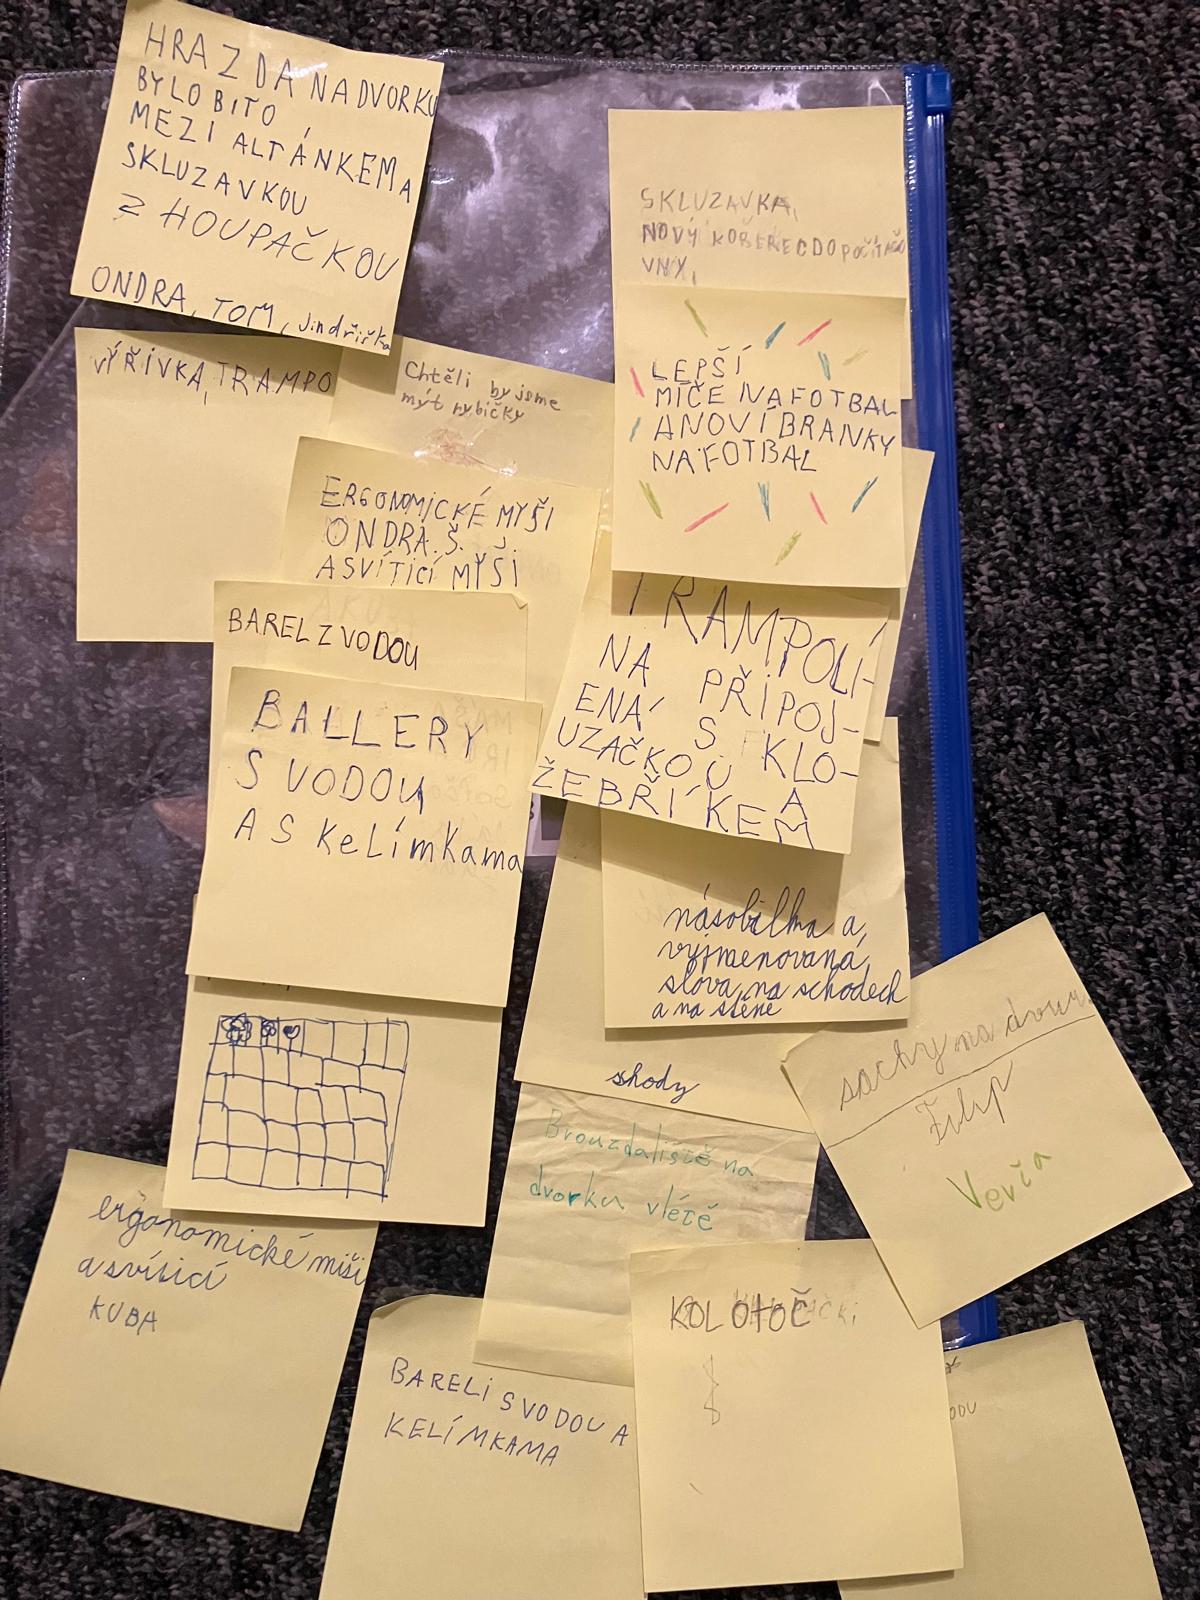 HRAZDA NA DVORKU
BYLO BI TO
MEZI ALTÁNKEM A
SKLUZAVKOU
Z HOUPAČKOU
ONDRA, TOM, Jindřiška
VÝŘIVKA, TRAMPO
Chtěli by jsme
mýt rybičky
ERGONOMICKÉ MYŠI
ONDRA Š.
A SVÍTICÍ MYŠI
BAREL Z VODOU
BALLERY
S VODOU
A S KeLímKama
SKLUZAVKA,
NOVÝ KOBEREC DO POČÍTAČO
VNY,
LEPŠÍ
MÍČE NA FOTBAL
A NOVÍ BRANKY
NA FOTBAL
TRAMPOLÍ-
NA PŘIPOJ-
ENÁ S KLO-
UZAČKOU A
ŽEBŘÍKEM
násobilka a
vyjmenovaná
slova na schodech
a na stěně
shody
Brouzdaliště na
dvorku vlétě
sachy na dvour
Filip
Verča
ergonomické miši
a svíticí
KUBA
BARELI S VODOU A
KELÍMKAMA
KOLOTOČ